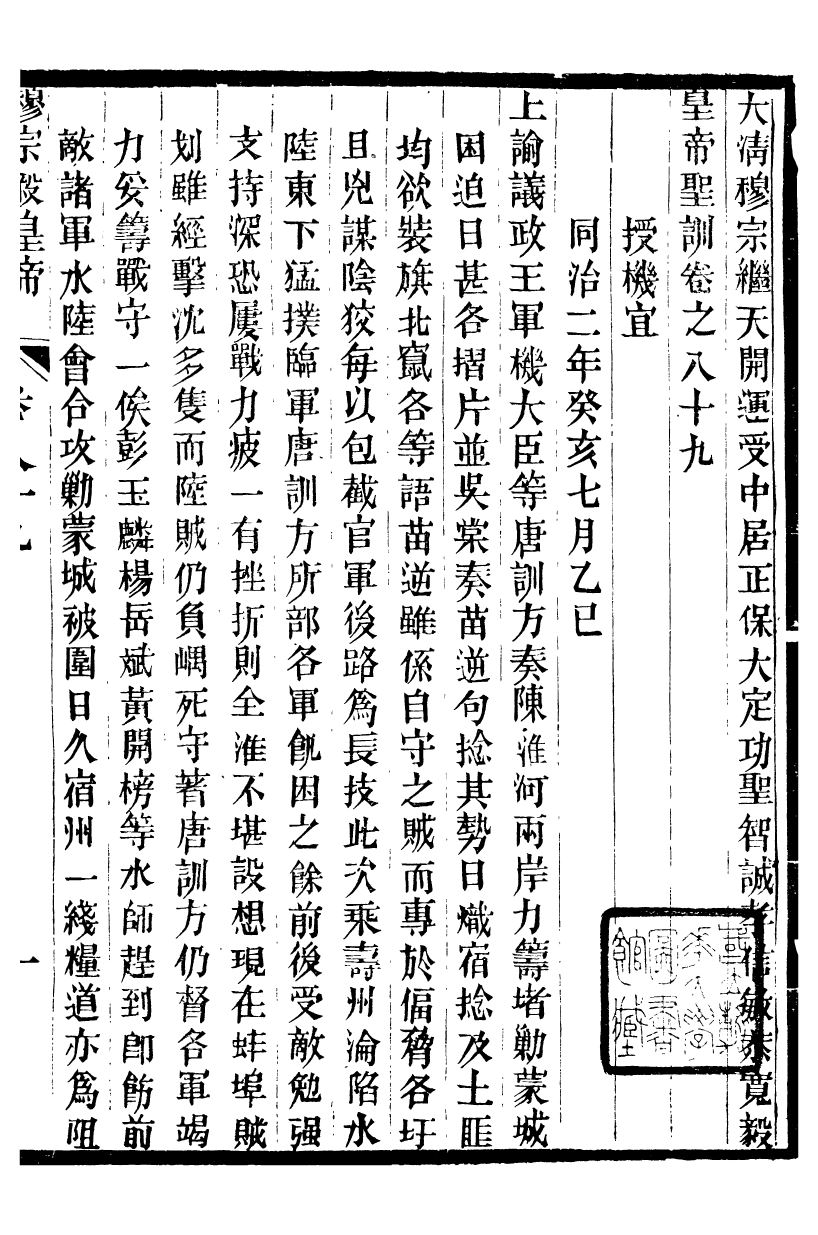 大清穆宗繼天開運受中居正保大定功聖智誠孝信敏恭寬毅
皇帝聖訓卷之八十九
授機宜
同治二年癸亥七月乙巳
上諭議政王軍機大臣等唐訓方奏陳淮河兩岸力籌堵勦蒙城
困迫日甚各摺片並吳棠奏苗逆句捻其勢日熾宿捻及土匪
均欲裝旗北竄各等語苗逆雖係自守之賊而專於偪脅各圩
且兇謀陰狡每以包截官軍後路爲長技此次乘壽州淪陷水
陸東下猛撲臨軍唐訓方所部各軍飢困之餘前後受敵勉强
支持深恐屢戰力疲一有挫折則全淮不堪設想現在蚌埠賊
划雖經擊沈多隻而陸賊仍負嵎死守著唐訓方仍督各軍竭
力妥籌戰守一俟彭玉麟楊岳斌黃開榜等水師趕到卽飭前
敵諸軍水陸會合攻勦蒙城被圍日久宿州一綫糧道亦爲阻
穆宗毅皇帝
卷八十九
一